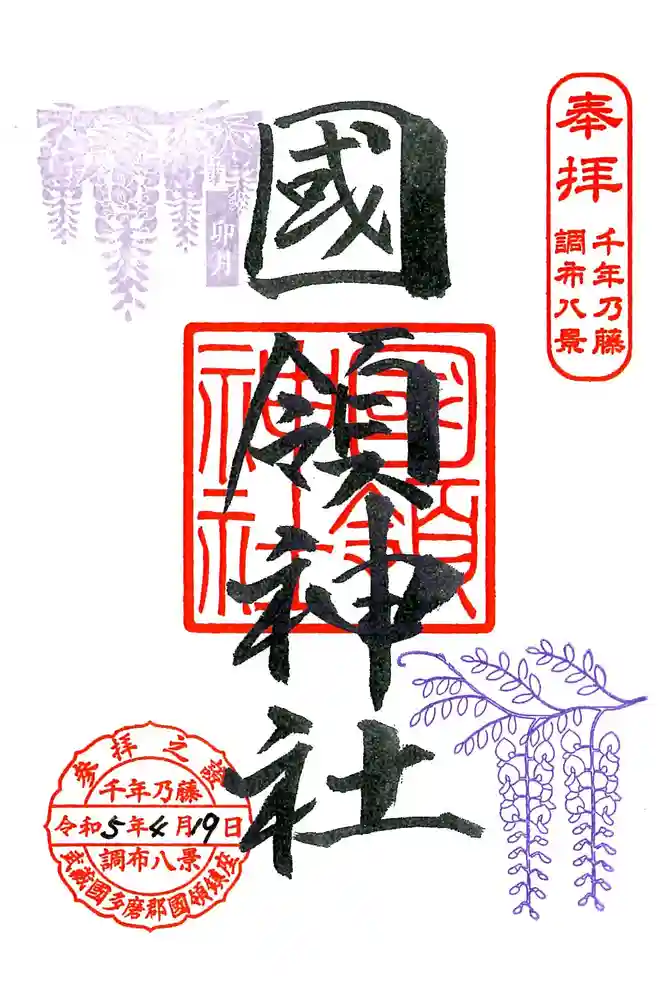 奉拝
千年乃藤
調布八景
卯月
國領神社
國領
神社
參拝之證
千年乃藤
令和5年4月19日
調布八景
武蔵國多磨郡國領鎮座